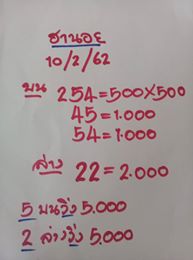 ฮานอย
10/2/62
บน 254=500×500
45=1.000
54=1.000
ล่าง 22=2.000
5 บนวิ่ง 5.000
2 ล่างวิ่ง 5.000